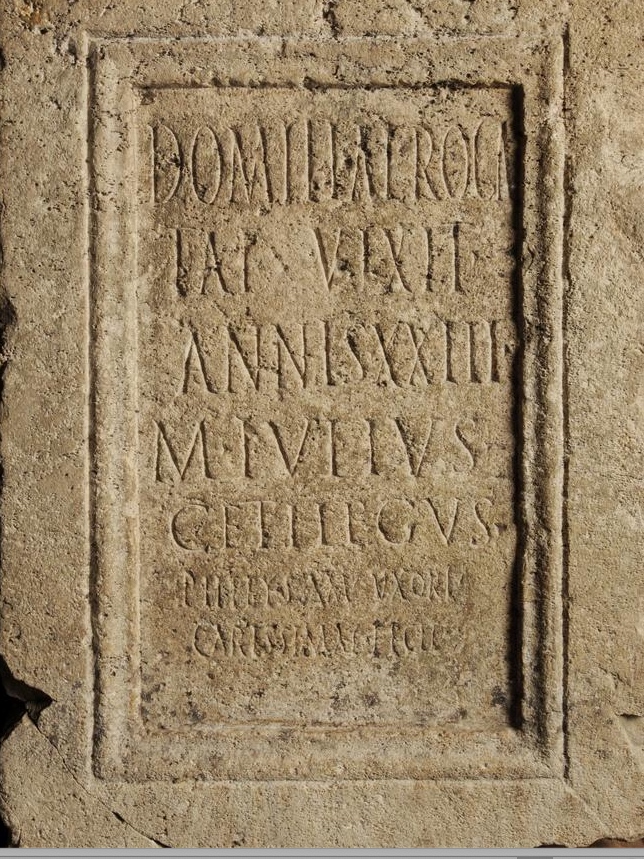 DOMITIAE ROGA
TAE VIXIT
ANNIS XXIII
M·IVLIVS
CETHEGVS
VXORI
CARISSIMAE FECIT